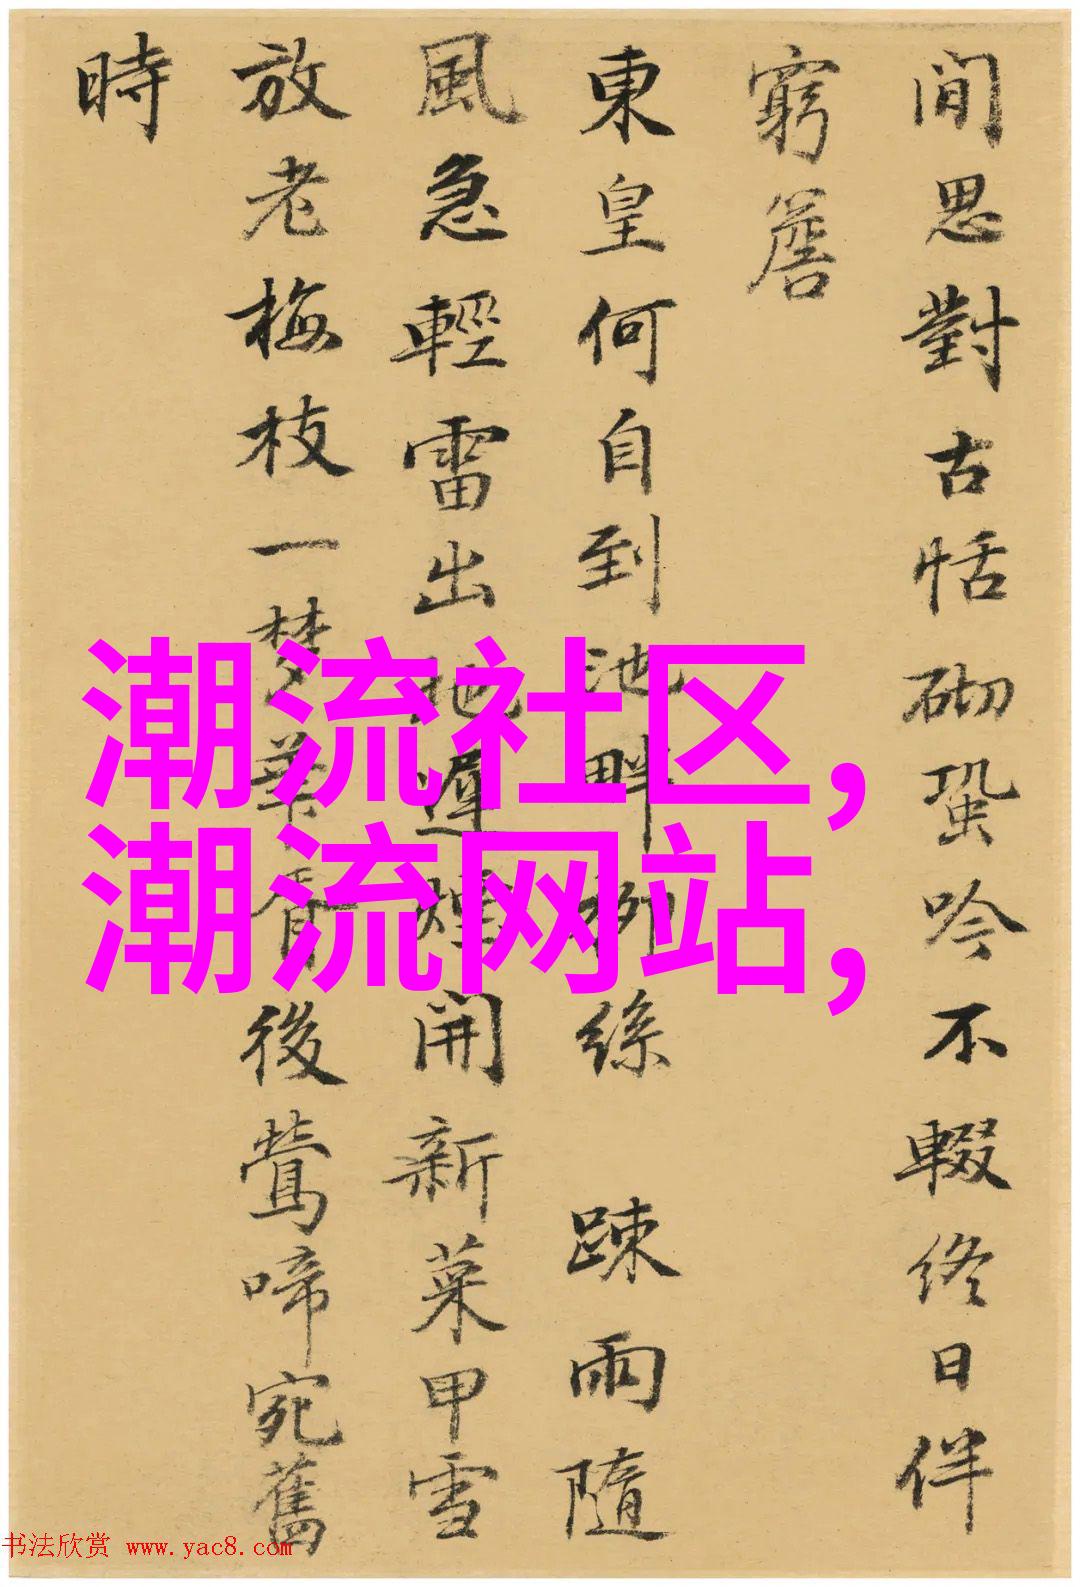 間思對古恬砌蛩吟不輟終日伴
窮簷
東皇何自到池畔柳絲 踈雨隨
風急輕雷出地遲煙開新菜甲雪
放老梅枝一梦華胥後鶯啼宛舊
時
潮流社区,
潮流网站,
书法欣赏 www.yac8.com